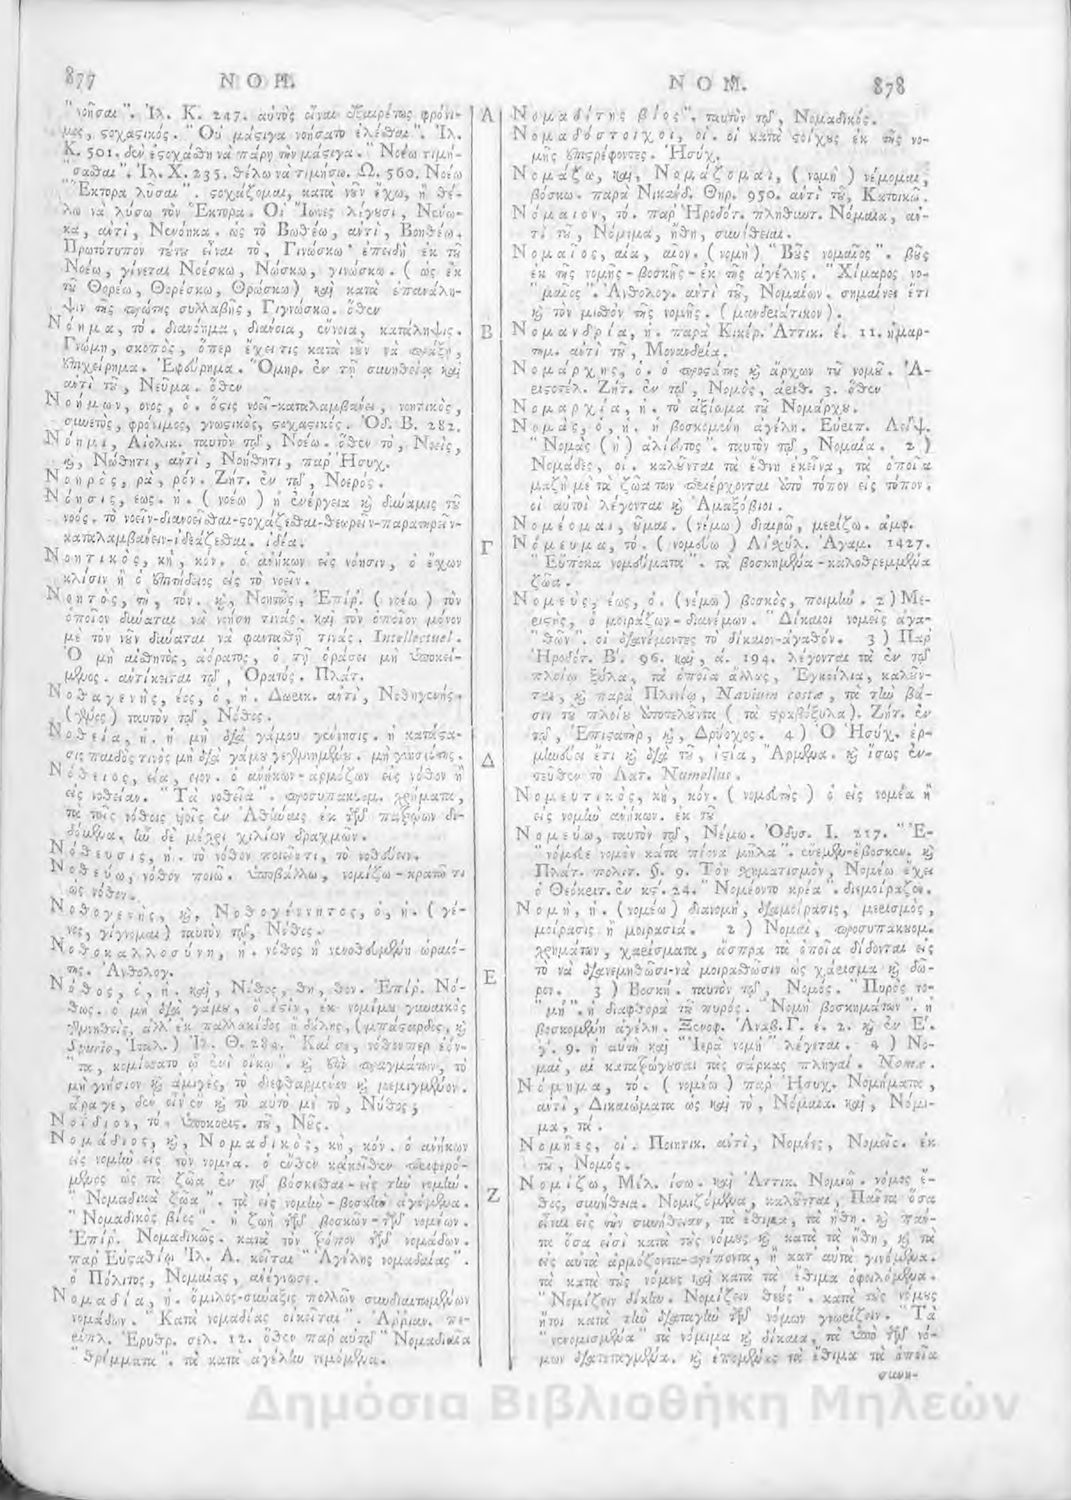 877 ΝΟΜ.
"νοῆσαι". Ἰλ. Κ. 247. αὐτὸς εἶναι ἐξαιρέτως φρόνι-
μος, στοχαστικός. "Οὐ μάστιγα νοήσατο ἑλέσθαι". Ἰλ.
Κ. 501. δὲν ἐστοχάσθη νὰ πάρῃ τὴν μάστιγα. "Νοέω τιμή-
"σασθαι". Ἰλ. Χ. 235. θέλω νὰ τιμήσω. Ω. 560. Νοέω
"Ἕκτορα λῦσαι". στοχάζομαι, κατὰ νοῦν ἔχω, ἢ θέ-
λω νὰ λύσω τὸν Ἕκτορα. Οἱ Ἴωνες λέγουσι, Νενω-
κα, ἀντὶ, Νενόηκα. ὡς τὸ Βωθέω, ἀντὶ, Βοηθέω.
Πρωτότυπον τούτου εἶναι τὸ, Γινώσκω· ἐπειδὴ ἐκ τοῦ
Νοέω, γίνεται Νοέσκω, Νώσκω, γινώσκω. (ὡς ἐκ
τοῦ Θορέω, Θορέσκω, Θρώσκω) καὶ κατὰ ἐπανάλη-
ψιν τῆς πρώτης συλλαβῆς, Γιγνώσκω. ὅθεν
Νόημα, τό. διανόημα, διάνοια, ἔννοια, κατάληψις.
Γνώμη, σκοπὸς, ὅπερ ἔχει τις κατὰ νοῦν νὰ πράξῃ,
ἐπιχείρημα. Ἐφεύρημα. Ὅμηρ. ἐν τῇ συνηθείᾳ καὶ
ἀντὶ τοῦ, Νεῦμα. ὅθεν
Νοήμων, ονος, ὁ. ὅστις νοεῖ-καταλαμβάνει, νοητικὸς,
συνετὸς, φρόνιμος, γνωστικὸς, στοχαστικός. Ὀδ. Β. 282.
Νόημι, Αἰολικ. ταυτὸν τῷ, Νοέω. ὅθεν τὸ, Νοεὶς,
καὶ, Νώθητι, ἀντὶ, Νοήθητι, παρ' Ἡσυχ.
Νοηρὸς, ρὰ, ρόν. Ζήτ. ἐν τῷ, Νοερός.
Νόησις, εως. ἡ. (νοέω) ἡ ἐνέργεια καὶ δύναμις τοῦ
νοός. τὸ νοεῖν-διανοεῖσθαι-στοχάζεσθαι-θεωρεῖν-παρατηρεῖν-
καταλαμβάνειν-ἰδεάζεσθαι. ἰδέα.
Νοητικὸς, κὴ, κόν. ὁ ἀνήκων εἰς νόησιν, ὁ ἔχων
κλίσιν ἢ ὁ ἐπιτήδειος εἰς τὸ νοεῖν.
Νοητὸς, τὴ, τόν. καὶ, Νοητῶς, Ἐπίρ. (νοέω) τὸν
ὁποῖον δύναται νὰ νοήσῃ τινάς. καὶ τὸν ὁποῖον μόνον
μὲ τὸν νοῦν δύναται νὰ φαντασθῇ τινάς. Intellectuel.
Ὁ μὴ αἰσθητὸς, ἀόρατος, ὁ τῇ ὁράσει μὴ ὑποκεί-
μενος. ἀντίκειται τῷ, Ὁρατός. Πλάτ.
Νοθαγενὴς, έος, ὁ, ἡ. Δωρικ. ἀντὶ, Νοθηγενής.
(γένος) ταυτὸν τῷ, Νόθος.
Νοθεία, ἡ. ἡ μὴ διὰ γάμου γέννησις. ἡ κατάστα-
σις παιδός τινος μὴ διὰ γάμου γεγεννημένου. μὴ γνησιότης.
Νόθειος, εία, ειον. ὁ ἀνήκων-ἁρμόζων εἰς νόθον ἢ
εἰς νοθείαν. "Τὰ νοθεῖα". προσυπακουομ. χρήματα,
τὰ τοῖς νόθοις υἱοῖς ἐν Ἀθήναις ἐκ τῶν πατρώων δι-
δόμενα. ἦν δὲ μέχρι χιλίων δραχμῶν.
Νόθευσις, ἡ. τὸ νόθον ποιεῖν τι, τὸ νοθεύειν.
Νοθεύω, νόθον ποιῶ. ὑποβάλλω, νομίζω-κρατῶ τι
ὡς νόθον.
Νοθογενὴς, καὶ, Νοθογέννητος, ὁ, ἡ. (γέ-
νος, γίγνομαι) ταυτὸν τῷ, Νόθος.
Νοθοκαλλοσύνη, ἡ. νόθος ἢ νενοθευμένη ὡραιό-
της. Ἀνθολογ.
Νόθος, ὁ, ἡ. καὶ, Νόθος, θη, θον. Ἐπίρ. Νό-
θως. ὁ μὴ διὰ γάμου, ὅ ἐστιν, ἐκ νομίμου γυναικὸς
γεννηθεὶς, ἀλλ' ἐκ παλλακίδος ἢ δούλης, (μπάσταρδος, καὶ
Spurio, Ἰταλ.) Ἰλ. Θ. 284. "Καί σε, νόθον περ ἐόν-
"τα, κομίσσατο ᾧ ἐνὶ οἴκῳ". καὶ ἐπὶ πραγμάτων, τὸ
μὴ γνήσιον καὶ ἀμιγὲς, τὸ διεφθαρμένον καὶ μεμιγμένον.
ἆραγε, δὲν εἶν' ἓν καὶ τὸ αὐτὸ μὲ τὸ, Νόθος;
Νοΐδιον, τό. Ὑποκορις. τοῦ, Νοῦς.
Νομάδιος, καὶ, Νομαδικὸς, κὴ, κόν. ὁ ἀνήκων
εἰς νομὴν εἰς τὸν νομέα. ὁ ἔνθεν κἀκεῖθεν περιφερό-
μενος ὡς τὰ ζῶα ἐν τῷ βόσκεσθαι-εἰς τὴν νομήν.
"Νομαδικὰ ζῶα". τὰ εἰς νομὴν-βοσκὴν ἀγόμενα.
"Νομαδικὸς βίος". ἡ ζωὴ τῶν βοσκῶν-τῶν νομέων.
Ἐπίρ. Νομαδικῶς. κατὰ τὸν τρόπον τῶν νομάδων.
παρ' Εὐσταθίῳ Ἰλ. Α. κεῖται "Ἀγέλης νομαδαίας".
ὁ Πόλιτος, Νομαίας, ἀνέγνωσε.
Νομαδία, ἡ. ὅμιλος-σύναξις πολλῶν συνδιαιτωμένων
νομάδων. "Κατὰ νομαδίας οἰκεῖται". Ἀρριαν. πε-
ρίπλ. Ἐρυθρ. σελ. 12. ὅθεν παρ' αὐτῷ "Νομαδιαῖα
"θρέμματα". τὰ κατὰ ἀγέλην νεμόμενα.
Α
Β
Γ
Δ
Ε
Ζ
ΝΟΜ. 878
Νομαδίτης βίος". ταυτὸν τῷ, Νομαδικός.
Νομαδόστοιχοι, οἱ. οἱ κατὰ στοίχους ἐκ τῆς νο-
μῆς ἐπιστρέφοντες. Ἡσύχ.
Νομάζω, καὶ, Νομάζομαι, (νομὴ) νέμομαι,
βόσκω. παρὰ Νικάνδ. Θηρ. 950. ἀντὶ τοῦ, Κατοικῶ.
Νόμαιον, τό. παρ' Ἡροδότ. πληθυντ. Νόμαια, ἀν-
τὶ τοῦ, Νόμιμα, ἤθη, συνήθειαι.
Νομαῖος, αία, αιον. (νομὴ) "Βοῦς νομαῖος". βοῦς
ἐκ τῆς νομῆς-βοσκῆς-ἐκ τῆς ἀγέλης. "Χίμαρος νο-
"μαῖος". Ἀνθολογ. ἀντὶ τοῦ, Νομαίων. σημαίνει ἔτι
καὶ τὸν μισθὸν τῆς νομῆς. (μανδριάτικον).
Νομανδρία, ἡ. παρὰ Κικέρ. Ἀττικ. έ. 11. ἡμαρ-
τημ. ἀντὶ τοῦ, Μονανδρία.
Νομάρχης, ὁ. ὁ προστάτης καὶ ἄρχων τοῦ νομοῦ. Ἀ-
ριστοτέλ. Ζήτ. ἐν τῷ, Νομὸς, ἀριθ. 3. ὅθεν
Νομαρχία, ἡ. τὸ ἀξίωμα τοῦ Νομάρχου.
Νομὰς, ὁ, ἡ. ἡ βοσκομένη ἀγέλη. Εὐριπ. Λείψ.
"Νομὰς (ἡ) ἀλίβατος". ταυτὸν τῷ, Νομαία. 2)
Νομάδες, οἱ. καλοῦνται τὰ ἔθνη ἐκεῖνα, τὰ ὁποῖα
μαζὴ μὲ τὰ ζῶα των περιέρχονται ἀπὸ τόπον εἰς τόπον.
οἱ αὐτοὶ λέγονται καὶ Ἁμαξόβιοι.
Νομέομαι, οῦμαι. (νέμω) διαιρῶ, μερίζω. ἀμφ.
Νόμευμα, τό. (νομεύω) Αἰσχύλ. Ἀγαμ. 1427.
"Εὔποκα νομεύματα". τὰ βοσκημένα-καλοθρεμμένα
ζῶα.
Νομεὺς, έως, ὁ. (νέμω) βοσκὸς, ποιμήν. 2) Με-
ριστὴς, ὁ μοιράζων-διανέμων. "Δίκαιοι νομεῖς ἀγα-
"θῶν". οἱ διανέμοντες τὸ δίκαιον-ἀγαθόν. 3) Παρ'
Ἡροδότ. Β'. 96. καὶ, ά. 194. λέγονται τὰ ἐν τῷ
πλοίῳ ξύλα, τὰ ὁποῖα ἄλλως, Ἐγκοίλια, καλοῦν-
ται, καὶ παρὰ Πλινίῳ, Navium costæ, τὰ τὴν βά-
σιν τοῦ πλοίου ἀποτελοῦντα (τὰ στραβόξυλα). Ζήτ. ἐν
τῷ, Ἐπιστατὴρ, καὶ, Δρύοχος. 4) Ὁ Ἡσύχ. ἑρ-
μηνεύει ἔτι καὶ διὰ τοῦ, ἱστία, Ἄρμενα. καὶ ἴσως ἐν-
τεῦθεν τὸ Λατ. Numellus.
Νομευτικὸς, κὴ, κόν. (νομευτὴς) ὁ εἰς νομέα ἢ
εἰς νομὴν ἀνήκων. ἐκ τοῦ
Νομεύω, ταυτὸν τῷ, Νέμω. Ὀδυσ. Ι. 217. "Ἐ-
"νόμευε νομὸν κάτα πίονα μῆλα". ἐνέμεν-ἔβοσκεν. καὶ
Πλάτ. πολιτ. §. 9. Τὸν σχηματισμὸν, Νομέω ἔχει
ὁ Θεόκριτ. ἐν κς'. 24. "Νομέοντο κρέα". διεμοίραζον.
Νομὴ, ἡ. (νομέω) διανομὴ, διαμοίρασις, μερισμὸς,
μοίρασις ἢ μοιρασία. 2) Νομαὶ, προσυπακουομ.
χρημάτων, χαρίσματα, ἄσπρα τὰ ὁποῖα δίδονται εἰς
τὸ νὰ διανεμηθῶσι-νὰ μοιρασθῶσιν ὡς χάρισμα καὶ δῶ-
ρον. 3) Βοσκή. ταυτὸν τῷ, Νομός. "Πυρὸς νο-
"μή". ἡ διαφθορὰ τοῦ πυρός. "Νομὴ βοσκημάτων". ἡ
βοσκομένη ἀγέλη. Ξενοφ. Ἀναβ. Γ. έ. 2. καὶ ἐν Ε'.
γ'. 9. ἡ αὐτὴ καὶ "Ἱερὰ νομὴ" λέγεται. 4) Νο-
μαὶ, αἱ κατατρώγουσαι τὰς σάρκας πληγαί. Nomæ.
Νόμημα, τό. (νομέω) παρ' Ἡσυχ. Νομήματα,
ἀντὶ, Δικαιώματα ὡς καὶ τὸ, Νόμαια. καὶ, Νόμι-
μα, τά.
Νομῆες, οἱ. Ποιητικ. ἀντὶ, Νομέες, Νομεῖς. ἐκ
τοῦ, Νομός.
Νομίζω, Μέλ. ίσω. καὶ Ἀττικ. Νομιῶ. νόμος ἔ-
θος, συνήθεια. Νομιζόμενα, καλοῦνται, Πάντα ὅσα
εἶναι εἰς τὴν συνήθειαν, τὰ ἔθιμα, τὰ ἤθη. καὶ πάν-
τα ὅσα εἰσὶ κατὰ τοὺς νόμους καὶ κατὰ τὰ ἤθη, καὶ τὰ
εἰς αὐτὰ ἁρμόζοντα-πρέποντα, ἢ κατ' αὐτὰ γινόμενα.
τὰ κατὰ τοὺς νόμους καὶ κατὰ τὰ ἔθιμα ὀφειλόμενα.
"Νομίζειν δίκην. Νομίζειν θεούς". κατὰ τοὺς νόμους
ἤτοι κατὰ τὴν διαταγὴν τῶν νόμων γνωρίζειν. "Τὰ
"νενομισμένα" τὰ νόμιμα καὶ δίκαια, τὰ ὑπὸ τῶν νό-
μων διατεταγμένα. καὶ ἑπομένως τὰ ἔθιμα τὰ ὁποῖα
συνη-
Δημόσια Βιβλιοθήκη Μηλεών